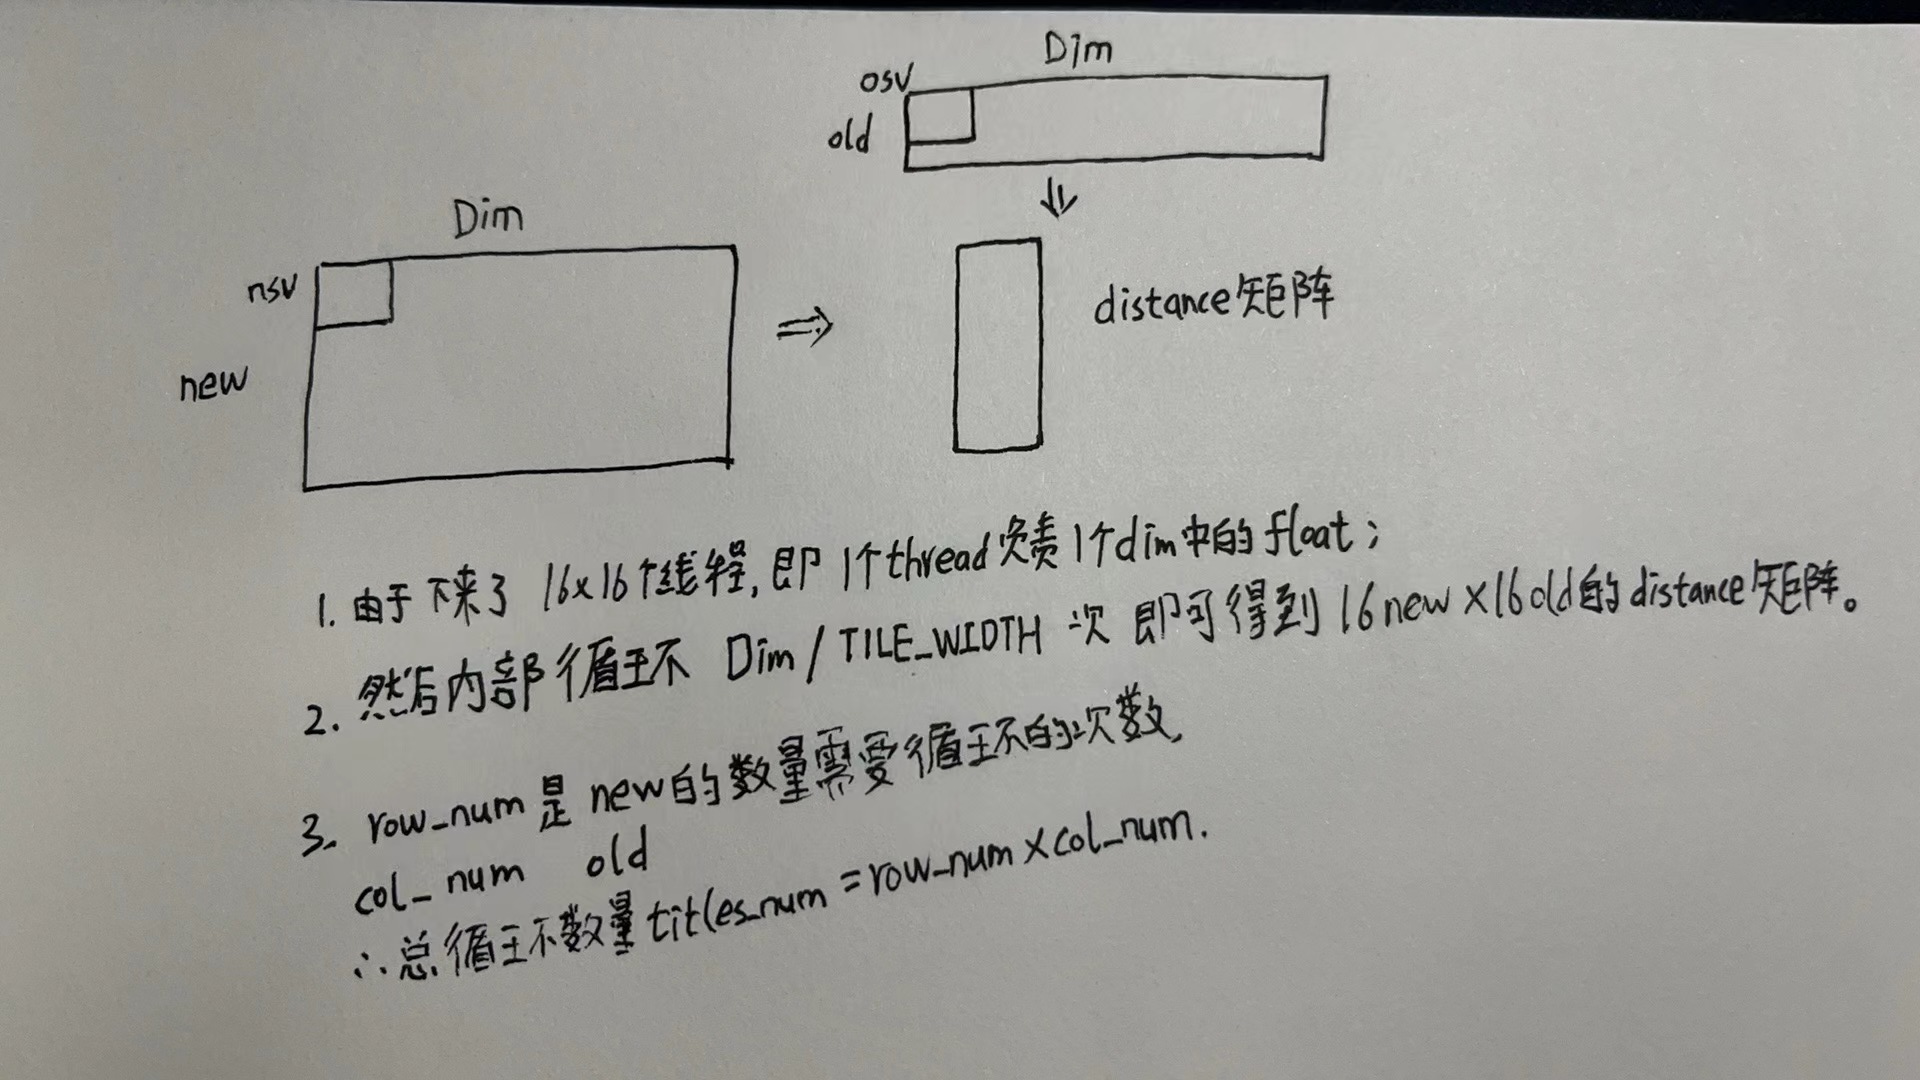 Dim
osv
old
Dim
nsv
new
distance矩阵
1. 由于下来了 16x16个线程, 即 1个thread负责1个dim中的float;
2. 然后内部循环 Dim / TILE_WIDTH 次 即可得到 16new x 16old的distance矩阵。
3. row_num 是 new的数量需要循环的次数,
col_num old
∴总循环数量 titles_num = row_num x col_num.